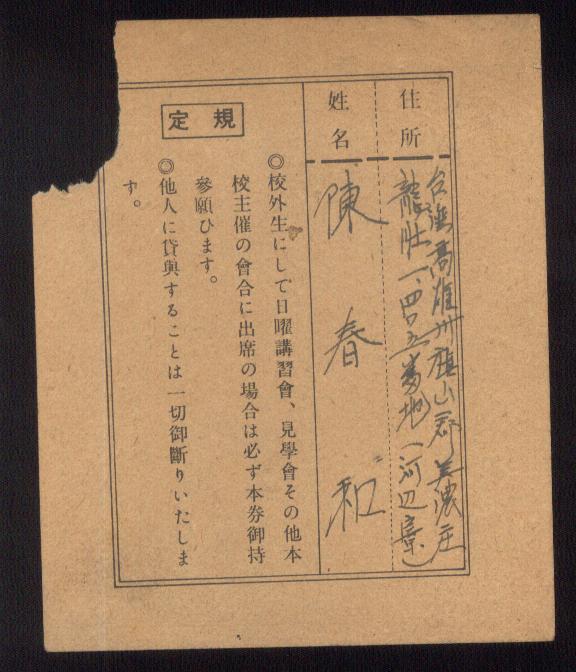 住所
台灣高雄州旗山郡美濃庄
龍肚一、四〇五番地(河辺
姓名
陳春和
規定
◎校外生にして日曜講習會、見學會その他本
校主催の會合に出席の場合は必ず本券御持
參願ひます。
◎他人に貸與することは一切御斷りいたしま
す。